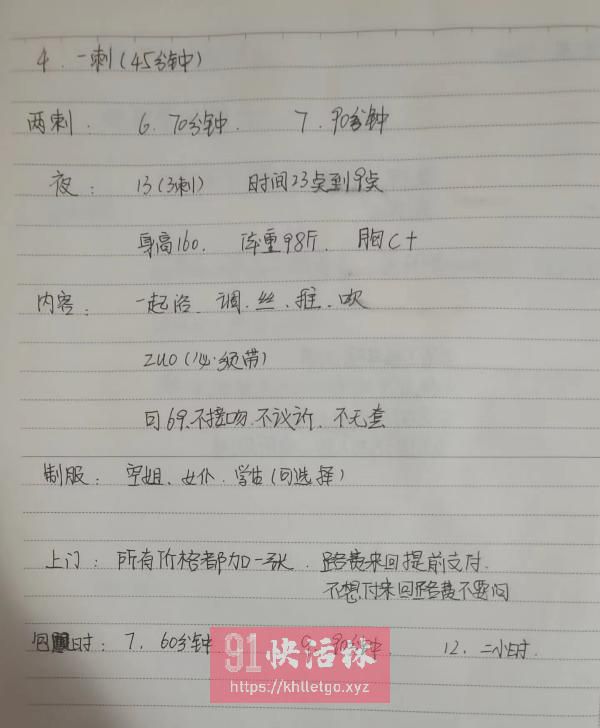 4. 一刺(45分钟)
两刺: 6. 70分钟. 7. 90分钟
夜: 13(3刺) 时间23点到9点
身高160. 体重98斤. 胸C+
内容: 一起浴. 调. 丝. 推. 吹
zuo(必须带)
可69.不接吻.不议价.不无套
制服: 空姐、女仆. 学生(可选择)
上门: 所有价格都加一张. 路费来回提前支付.
不想付来回路费不要问
时: 7. 60分钟 9. 90分钟. 12. 二小时.
91快活林
https://khlletgo.xyz